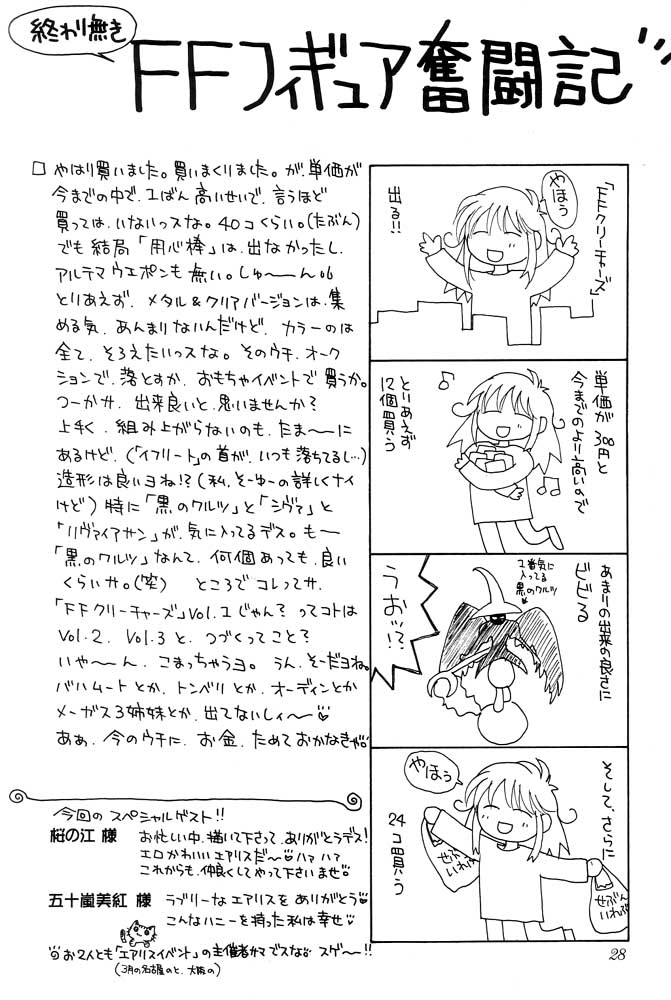 終わり無き
FFフィギュア奮闘記
□ やはり買いました。買いまくりました。が、単価が
今までの中で、1ばん高いせいで、言うほど
買っては、いないっスな。40コくらい。(たぶん)
でも結局「用心棒」は、出なかったし、
アルテマウエポンも無い。しゅ〜〜ん
とりあえず、メタル&クリアバージョンは、集
める気、あんまりないんだけど、カラーのは
全て、そろえたいっスな。そのウチ、オーク
ションで、落とすか、おもちゃイベントで買うか。
つーかサ、出来良いと、思いませんか?
上手く、組み上がらないのも、たまーーに
あるけど、(「イフリート」の首が、いつも落ちてるし…)
造形は良いヨね!?(私、そーゆーの詳しくナイ
けど)特に「黒のワルツ」と「シヴァ」と
「リヴァイアサン」が、気に入ってるデス。もー
「黒のワルツ」なんて、何個あっても、良い
くらいサ。(笑) ところでコレってサ、
「FFクリーチャーズ」Vol.1じゃん?ってコトは
Vol.2、Vol.3と、つづくってこと?
いや〜〜ん、こまっちゃうヨ。うん、そーだヨね。
バハムートとか、トンベリとか、オーディンとか
メーガス3姉妹とか、出てないしィ〜
ああ、今のウチに、お金、ためておかなきゃ
「FFクリーチャーズ」
やほぅ
出る!!
単価が300円と
今までのより高いので
とりあえず
12個買う
あまりの出来の良さに
ビビる
1番気に
入ってる
黒のワルツ
うおッ!?
そして、さらに
やほぅ
24コ買う
ぜぶん
いれば
ぜぶん
いれば
今回の スペシャルゲスト!!
桜の江 様 お忙しい中、描いて下さって、ありがとうデス!
エロかわいいエアリスだ〜 ハァ ハァ
これからも、仲良くしてやって下さいませ
五十嵐美紅 様 ラブリーなエアリスを ありがとう
こんなハニーを持った私は幸せ
お2人とも「エアリスイベント」の主催者サマでスな スゲ〜!!
(3月の名古屋のと、大阪の)
28